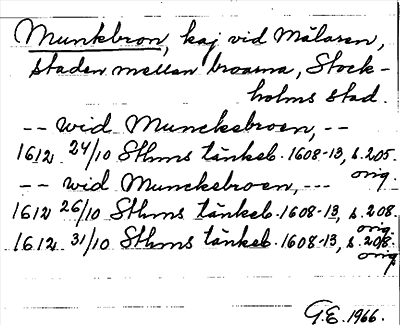 Munkbron, kaj vid Mälaren,
staden mellan broarna, Stock-
holms stad.
-- wid Munckebroen, --
1612 24/10 Sthms tänkeb. 1608-13, s. 205.
orig.
-- wid Munckebroen, ---
1612 26/10 Sthms tänkeb. 1608-13, s. 208.
orig.
1612 31/10 Sthms tänkeb. 1608-13, s. 208.
orig.
G.E. 1966.